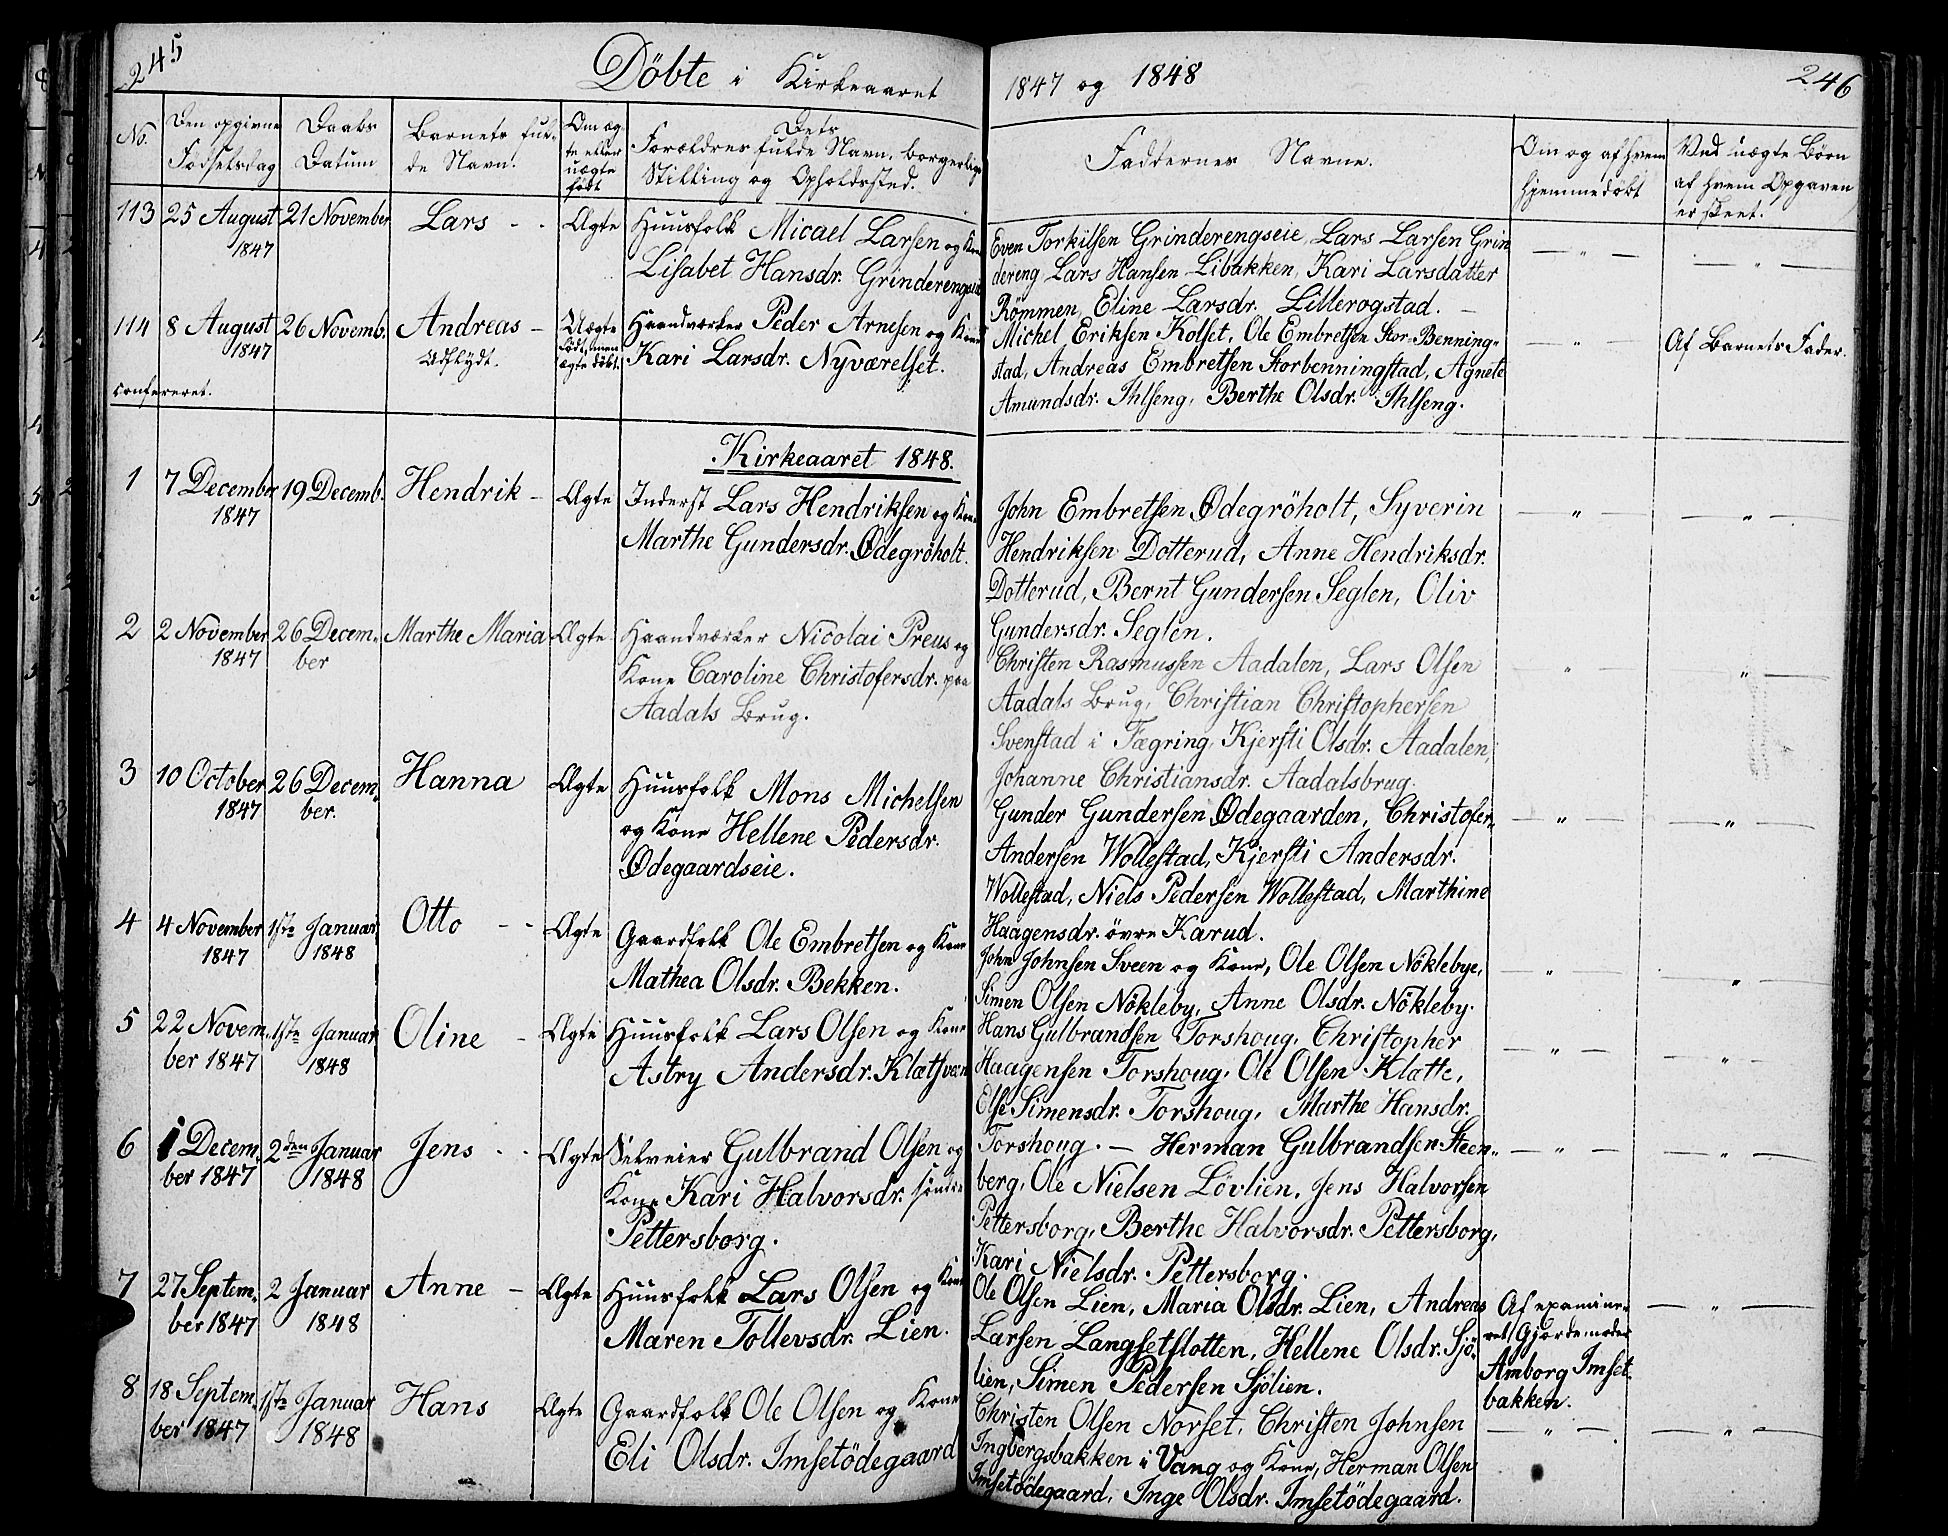 245
Döbte i Kirkeaaret
No.
Den opgivne
Födselsdag
Daabs
Datum
Barnets ful-
de Navn.
Om æg-
te eller
uægte
födt
Dets
Forældres fulde Navn, borgerlige
Stilling og Opholdssted.
113 25 August 21 November Lars - - Ægte Huusfolk Micael Larsen og Kone
1847
Lisabet Hansdr. Grinderengseie
114 8 August 26 Novemb. Andreas - Uægte Haandværker Peder Arnesen og Kone
1847 Udslydt. födt, men
ægte döbt. Kari Larsdr. Nyværelset.
confereret.
Kirkeaaret 1848.
1 7 December 19 Decemb. Hendrik - Ægte Inderst Lars Hendriksen og Kone
1847
Marthe Gundersdr. Ødegröholt.
2 2 November 26 Decem- Marthe Maria Ægte Haandværker Nicolai Preus og
1847 ber
Kone Caroline Christofersdr. paa
Aadals Brug.
3 10 October 26 Decem- Hanna Ægte Huusfolk Mons Michelsen
1847 ber.
og Kone Hellene Pedersdr.
Ødegaardseie.
4 4 November 1ste Januar Otto - - Ægte Gaardfolk Ole Embretsen og Kone
1847 1848
Mathea Olsdr. Bekken.
5 22 Novem- 1ste Januar Oline - Ægte Huusfolk Lars Olsen og Kone
ber 1847 1848
Astry Andersdr. Klætsveen
6 1 Decem- 2den Januar Jens - - Ægte Selveier Gulbrand Olsen og
ber 1847 1848
Kone Kari Halvorsdr. söndre
Pettersborg.
7 27 Septem- 2 Januar Anne - Ægte Huusfolk Lars Olsen og Kone
ber 1847 1848
Maren Tollevsdr. Lien.
8 18 Septem- 1ste Januar Hans Ægte Gaardfolk Ole Olsen og Kone
ber 1847 1848
Eli Olsdr. Imsetödegaard
1847 og 1848
246
Faddernes Navne.
Om og af hvem
hjemmedöbt
Ved uægte Börn
af hvem Opgaven
er skeet.
Even Torkilsen Grinderengseie, Lars Larsen Grin
dereng Lars Hansen Libakken, Kari Larsdatter
Römmen, Eline Larsdr. Lillerogstad. -
Michel Eriksen Kolset, Ole Embretsen Stor-Benning- Af Barnets Fader.
stad, Andreas Embretsen Storbenningstad, Agnete
Amundsdr. Ihlseng, Berthe Olsdr. Ihlseng.
John Embretsen Ødegröholt, Syverin
Hendriksen Dotterud, Anne Hendriksdr.
Dotterud, Bernt Gundersen Seglen, Oliv
Gundersdr. Seglen.
Christen Rasmussen Aadalen, Lars Olsen
Aadals Brug, Christian Christophersen
Svenstad i Fægring, Kjersti Olsdr. Aadalen,
Johanne Christiansdr. Aadalsbrug.
Gunder Gundersen Ødegaarden, Christofer
Andersen Wollestad, Kjersti Andersdr.
Wollestad, Niels Pedersen Wollestad, Marthine
Haagensdr. övre Karud.
John Johnsen Sveen og Kone, Ole Olsen Nöklebye,
Simen Olsen Nökleby, Anne Olsdr. Nökleby.
Hans Gulbrandsen Torshoug, Christopher
Haagensen Torshoug, Ole Olsen Klatte,
Else Simensdr. Torshoug, Marthe Hansdr.
Torshoug. - Herman Gulbrandsen Steen-
berg, Ole Nielsen Lövlien, Jens Halvorsen
Pettersborg, Berthe Halvorsdr. Pettersborg,
Kari Nielsdr. Pettersborg.
Ole Olsen Lien, Maria Olsdr. Lien, Andreas
Larsen Langsetflotten, Hellene Olsdr. Sjö-
lien, Simen Pedersen Sjölien.
Af examine-
ret Gjordemoder
Amborg Imset-
bakken.
Christen Olsen Norset, Christen Johnsen
Ingbergsbakken i Vang og Kone, Herman Olsen
Imsetödegaard, Inge Olsdr. Imsetödegaard.